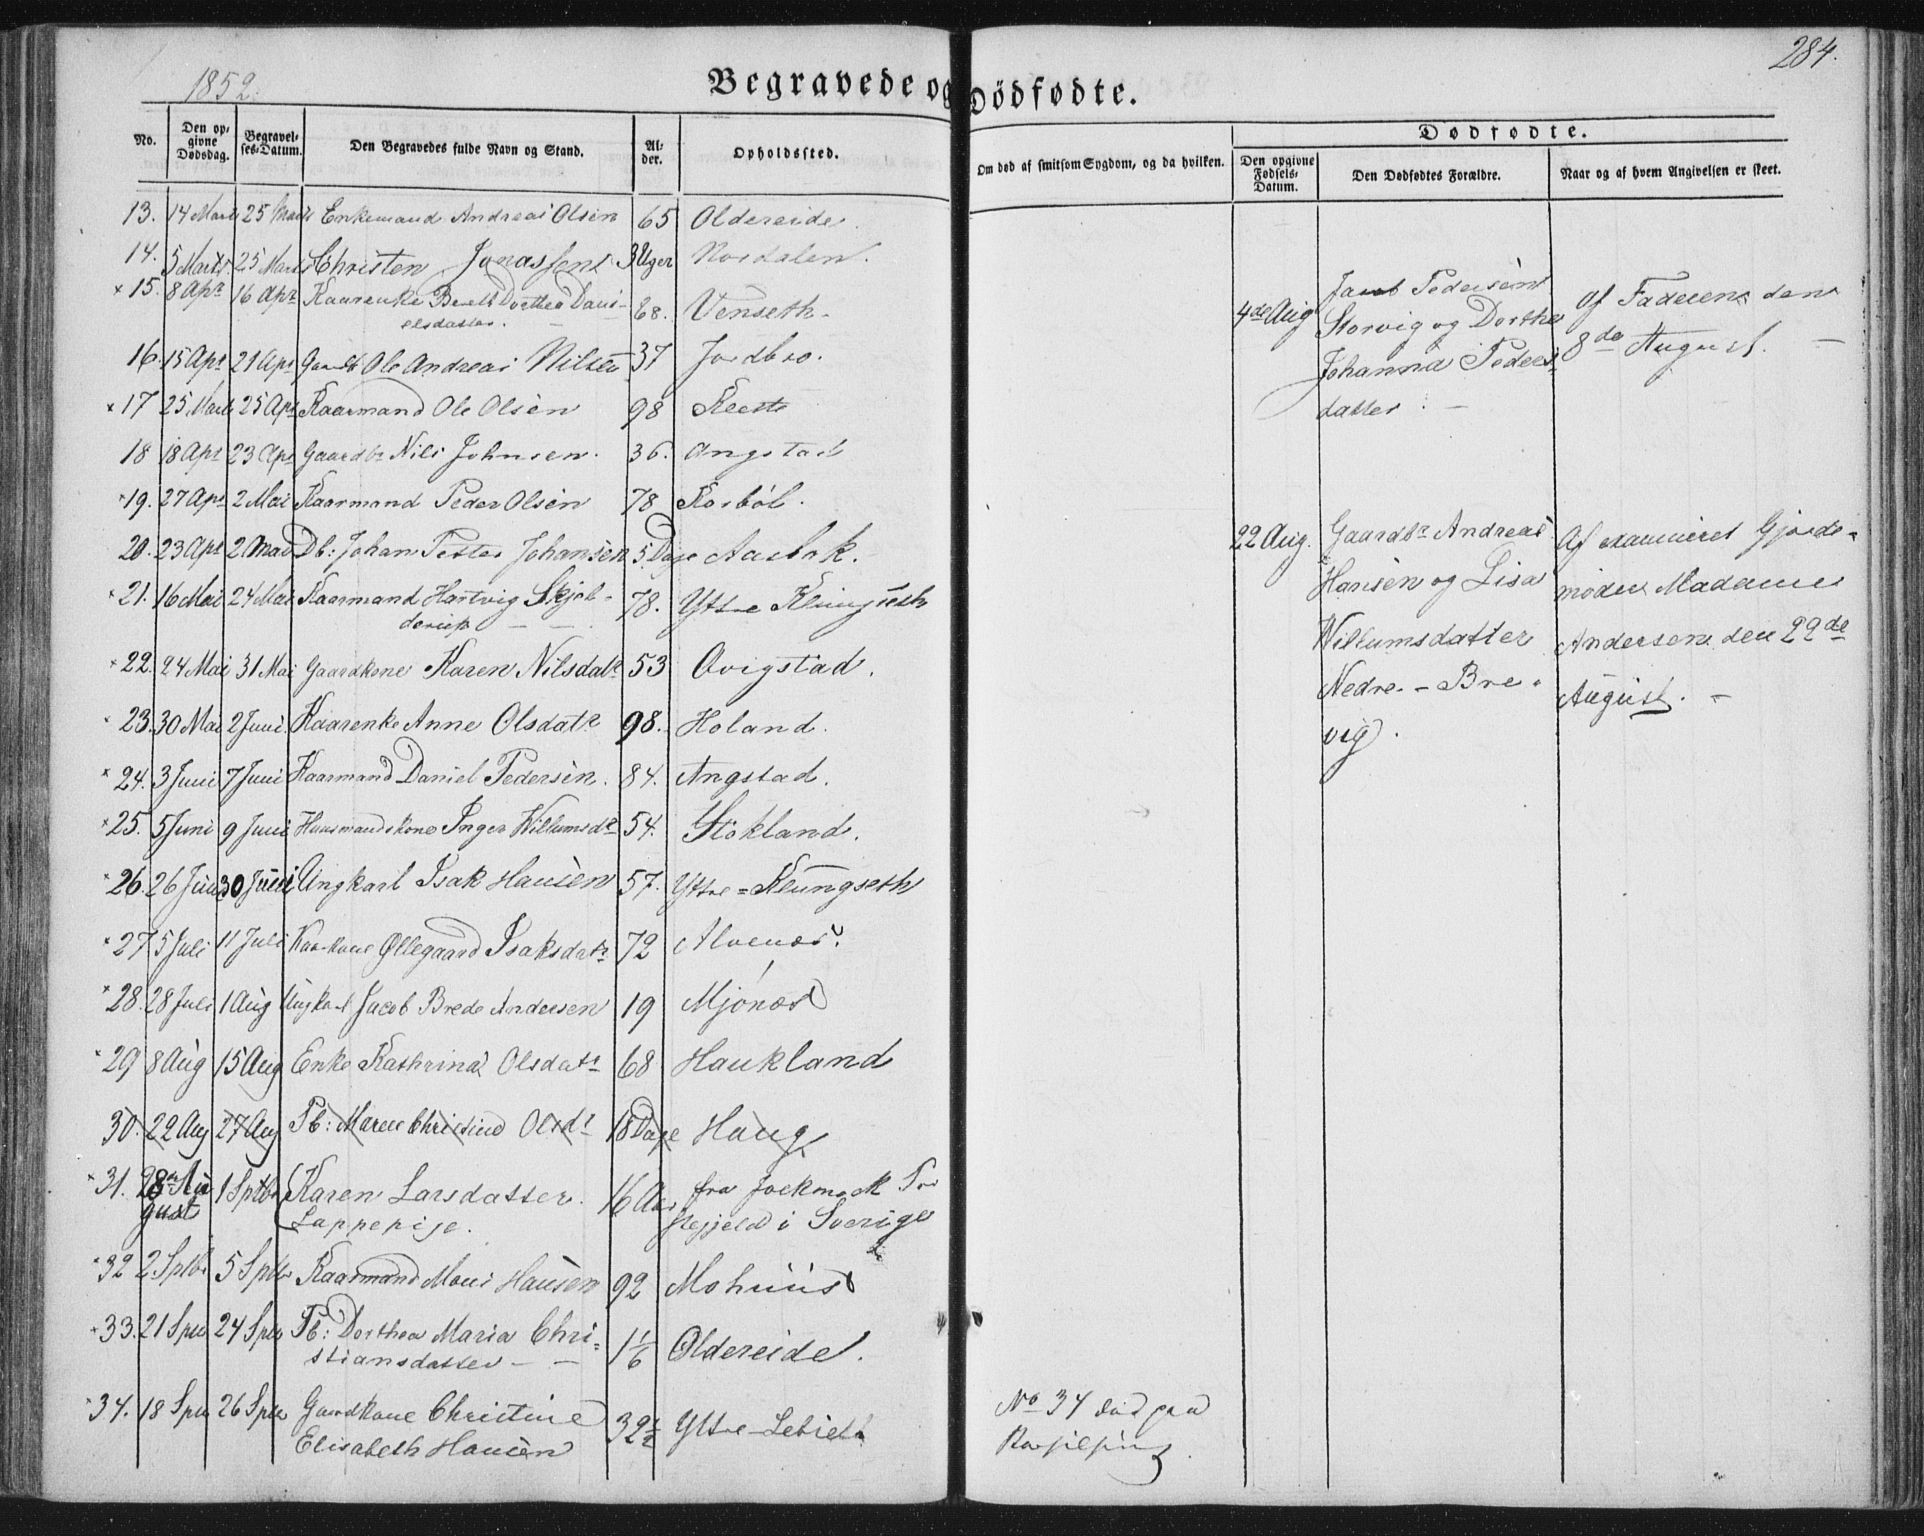 1852.
Begravede og Dödfødte.
284.
No.
Den opgivne Dødsdag.
Begravelses-Datum.
Den Begravedes fulde Navn og Stand.
Alder.
Opholdssted.
Om død af smitsom Sygdom, og da hvilken.
Dødfødte.
Den opgivne Fødsels-Datum.
Den Dødfødtes Forældre.
Naar og af hvem Angivelsen er skeet.
13. 14 Marts 25 Marts Enkemand Andreas Olsen 65 Oldereide
14. 5 Marts 25 Marts Christen Jonassen 3 Uger Nordalen.
× 15. 8 Apr 16 Apr Kaarenke Dorthea Dani-
elsdatter. 68. Venseth.
16. 15 Apr 21 Apr Gaardb Ole Andreas Nilsen 37 Jordbro.
× 17 25 Marts 25 Apr Kaarmand Ole Olsen 98
18 18 Apr 23 Apr Gaardbr Nils Johnsen. 36. Angstad
× 19. 27 Apr 2 Mai Kaarmand Peder Olsen 78 Kosböl.
20. 23 Apr 2 Mai Db: Johan Petter Johansen 5 Dage
× 21. 16 Mai 24 Mai Kaarmand Hartvig Skjel-
derup 78. Yttre Klungseth
× 22. 24 Mai 31 Mai Gaardkone Karen Nilsdatr 53 Qvigstad.
× 23. 30 Mai 2 Juni Kaarenke Anne Olsdatr 98. Holand.
× 24. 3 Juni 7 Juni Kaarmand Daniel Pedersen. 84. Angstad.
× 25. 5 Juni 9 Juni Huusmandskone Inger Willumsdr 54. Stokland.
× 26. 26 Juni 30 Juni Ungkarl Isak Hansen 57. Yttre=Klungseth
× 27 5 Juli 11 Juli Kaarkone Øllegaard Isaksdatr 72 Alvenes.
× 28. 28 Juli 1 Aug Ungkarl Jacob Brede Andersen 19 Mjönæs
× 29 8 Aug 15 Aug Enke Kathrina Olsdatr 68 Haukland
30. 22 Aug 27 Aug Pb: Maren Christine Olsdr 18 Dage Haug
× 31. 28de Au-
gust 1 Sptbr Karen Larsdatter. 16 Aar fra Jockmock
Lappepige. i Sverige
× 32 2 Sptbr 5 Sptbr Kaarmand Mons Hansen 92 Mohuus
× 33. 21 Sptr 24 Sptr Pb: Dorthea Maria Chri-
stiansdatter 1 1/6 Oldereide.
× 34. 18 Sptr 26 Sptr Gaardkone Christine
Elisabeth Hansen 32 1/2 Yttre
4de Aug
Jacob Pedersen
Storvig og Dorthe
Johanna Peders-
datter.
Af Faderen den
8de August.
22 Aug.
Gaardbr Andreas
Hansen og Lisa
Willumsdatter
Nedre - Bre-
vig.
Af examineret Gjorde-
moder Madame
Andersen den 22de
August.
No 34 död paa